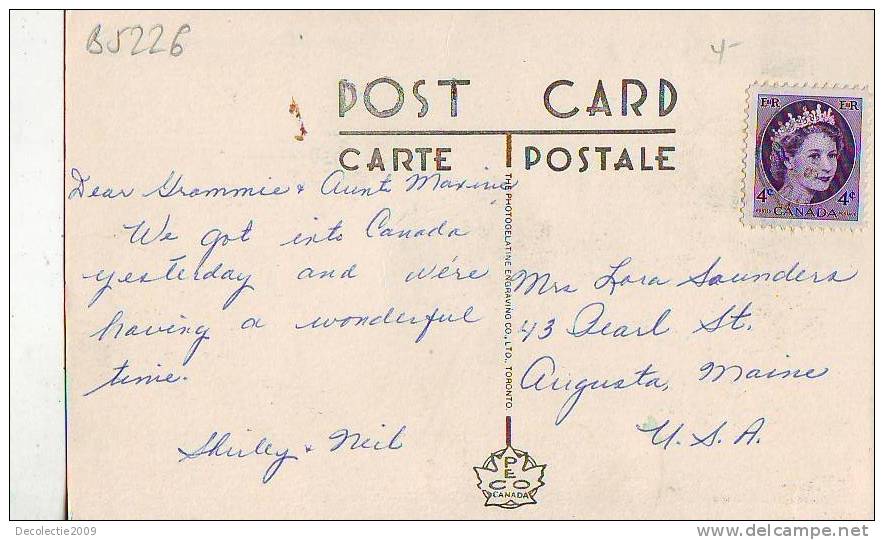 B5226
4-
POST CARD
CARTE POSTALE
E II R
E II R
4¢
4¢
CANADA
Dear Grammie & Aunt Maxine
We got into Canada
yesterday and we're
having a wonderful
time.
Shirley & Neil
THE PHOTOGELATINE ENGRAVING CO., LTD., TORONTO.
Mrs Lora Saunders
43 Pearl St.
Augusta, Maine
U.S.A.
PECO
CANADA
Decolectie2009
www.delcampe.net